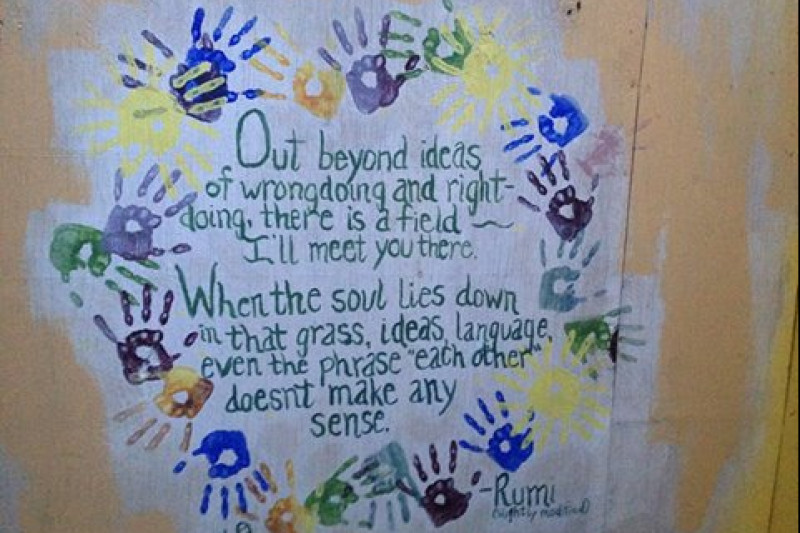 Out beyond ideas
of wrongdoing and right-
doing, there is a field ~
I'll meet you there.
When the soul lies down
in that grass, ideas, language,
even the phrase "each other"
doesnt make any
sense.
-Rumi
(slightly modified)